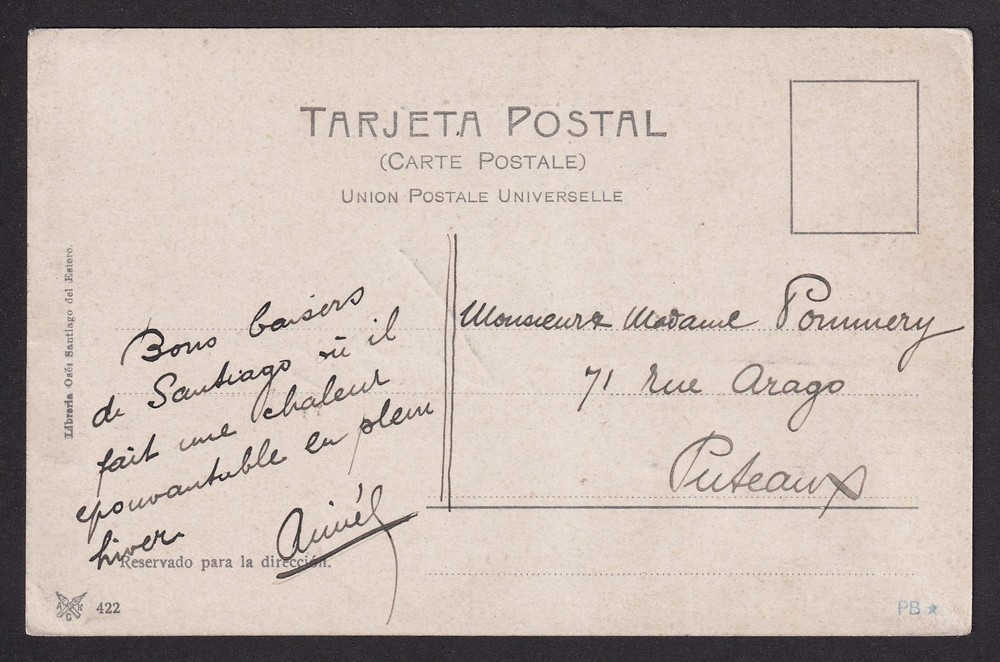 TARJETA POSTAL
(CARTE POSTALE)
UNION POSTALE UNIVERSELLE
Librería Osés Santiago del Estero.
Bons baisers
de Santiago où il
fait une chaleur
epouvantable en plein
hiver
Monsieur & Madame Pommery
71 rue Arago
Puteaux
Reservado para la dirección.
422
PB